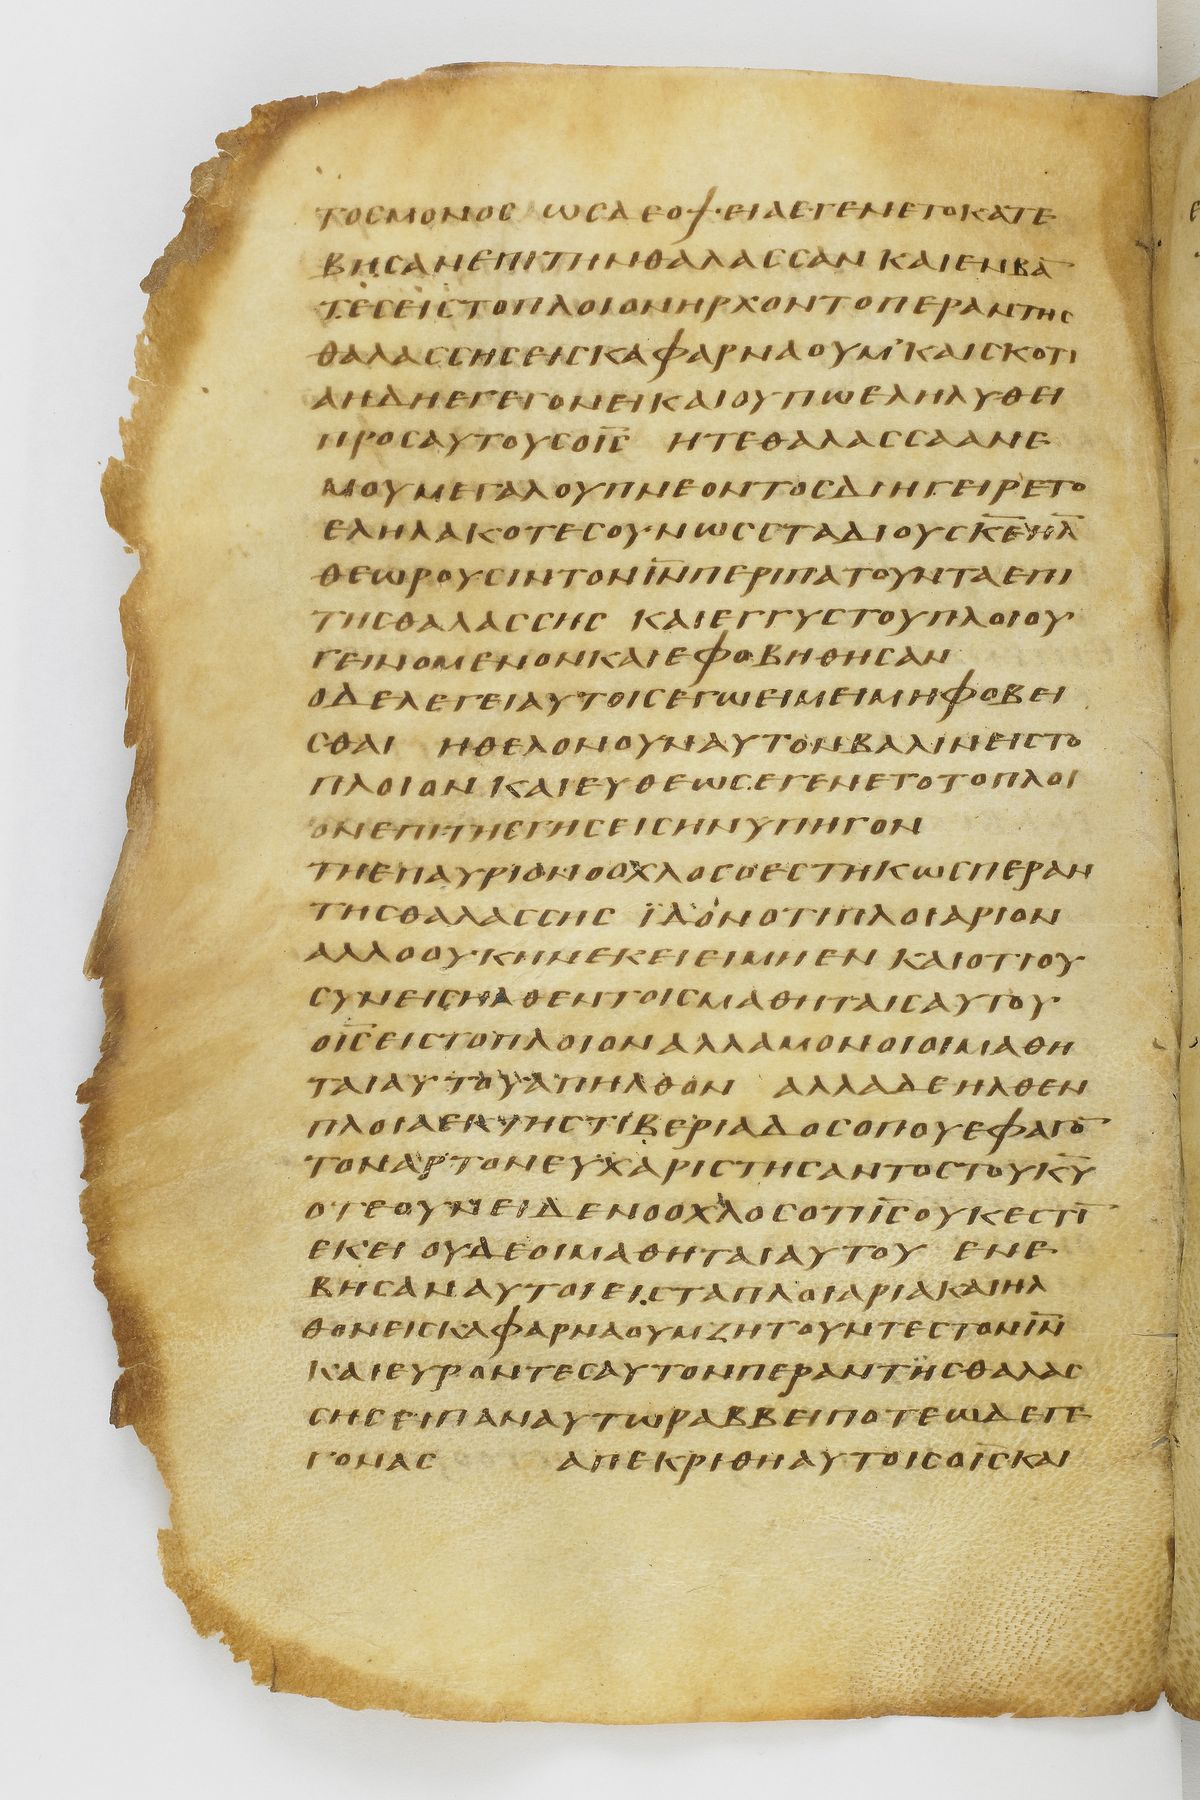 ΤΟΣ ΜΟΝΟΣ ΩΣ ΔΕ ΟΨΕΙΑ ΕΓΕΝΕΤΟ ΚΑΤΕ
ΒΗΣΑΝ ΕΠΙ ΤΗΝ ΘΑΛΑΣΣΑΝ ΚΑΙ ΕΝΒΑ̅
ΤΕΣ ΕΙΣ ΤΟ ΠΛΟΙΟΝ ΗΡΧΟΝΤΟ ΠΕΡΑΝ ΤΗΣ
ΘΑΛΑΣΣΗΣ ΕΙΣ ΚΑΦΑΡΝΑΟΥΜ ΚΑΙ ΣΚΟΤΙ
Α ΗΔΗ ΕΓΕΓΟΝΕΙ ΚΑΙ ΟΥΠΩ ΕΛΗΛΥΘΕΙ
ΠΡΟΣ ΑΥΤΟΥΣ Ο Ι̅Σ̅ Η ΤΕ ΘΑΛΑΣΣΑ ΑΝΕ
ΜΟΥ ΜΕΓΑΛΟΥ ΠΝΕΟΝΤΟΣ ΔΙΗΓΕΙΡΕΤΟ
ΕΛΗΛΑΚΟΤΕΣ ΟΥΝ ΩΣ ΣΤΑΔΙΟΥΣ Κ̅Ε̅ Η Λ̅
ΘΕΩΡΟΥΣΙΝ ΤΟΝ Ι̅Ν̅ ΠΕΡΙΠΑΤΟΥΝΤΑ ΕΠΙ
ΤΗΣ ΘΑΛΑΣΣΗΣ ΚΑΙ ΕΓΓΥΣ ΤΟΥ ΠΛΟΙΟΥ
ΓΕΙΝΟΜΕΝΟΝ ΚΑΙ ΕΦΟΒΗΘΗΣΑΝ
Ο ΔΕ ΛΕΓΕΙ ΑΥΤΟΙΣ ΕΓΩ ΕΙΜΕΙ ΜΗ ΦΟΒΕΙ
ΣΘΑΙ ΗΘΕΛΟΝ ΟΥΝ ΑΥΤΟΝ ΒΑΛΙΝ ΕΙΣ ΤΟ
ΠΛΟΙΟΝ ΚΑΙ ΕΥΘΕΩΣ ΕΓΕΝΕΤΟ ΤΟ ΠΛΟΙ
ΟΝ ΕΠΙ ΤΗΣ ΓΗΣ ΕΙΣ ΗΝ ΥΠΗΓΟΝ
ΤΗ ΕΠΑΥΡΙΟΝ Ο ΟΧΛΟΣ Ο ΕΣΤΗΚΩΣ ΠΕΡΑΝ
ΤΗΣ ΘΑΛΑΣΣΗΣ ΙΔΟΝ ΟΤΙ ΠΛΟΙΑΡΙΟΝ
ΑΛΛΟ ΟΥΚ ΗΝ ΕΚΕΙ ΕΙ ΜΗ ΕΝ ΚΑΙ ΟΤΙ ΟΥ
ΣΥΝΕΙΣΗΛΘΕΝ ΤΟΙΣ ΜΑΘΗΤΑΙΣ ΑΥΤΟΥ
Ο Ι̅Σ̅ ΕΙΣ ΤΟ ΠΛΟΙΟΝ ΑΛΛΑ ΜΟΝΟΙ ΟΙ ΜΑΘΗ
ΤΑΙ ΑΥΤΟΥ ΑΠΗΛΘΟΝ ΑΛΛΑ ΔΕ ΗΛΘΕΝ
ΠΛΟΙΑ ΕΚ ΤΗΣ ΤΙΒΕΡΙΑΔΟΣ ΟΠΟΥ ΕΦΑΓΟ̅
ΤΟΝ ΑΡΤΟΝ ΕΥΧΑΡΙΣΤΗΣΑΝΤΟΣ ΤΟΥ Κ̅Υ̅
ΟΤΕ ΟΥΝ ΕΙΔΕΝ Ο ΟΧΛΟΣ ΟΤΙ Ι̅Σ̅ ΟΥΚ ΕΣΤΙ̅
ΕΚΕΙ ΟΥΔΕ ΟΙ ΜΑΘΗΤΑΙ ΑΥΤΟΥ ΕΝΕ
ΒΗΣΑΝ ΑΥΤΟΙ ΕΙΣ ΤΑ ΠΛΟΙΑΡΙΑ ΚΑΙ ΗΛ
ΘΟΝ ΕΙΣ ΚΑΦΑΡΝΑΟΥΜ ΖΗΤΟΥΝΤΕΣ ΤΟΝ Ι̅Ν̅
ΚΑΙ ΕΥΡΟΝΤΕΣ ΑΥΤΟΝ ΠΕΡΑΝ ΤΗΣ ΘΑΛΑΣ
ΣΗΣ ΕΙΠΑΝ ΑΥΤΩ ΡΑΒΒΕΙ ΠΟΤΕ ΩΔΕ ΓΕ
ΓΟΝΑΣ ΑΠΕΚΡΙΘΗ ΑΥΤΟΙΣ Ο Ι̅Σ̅ ΚΑΙ